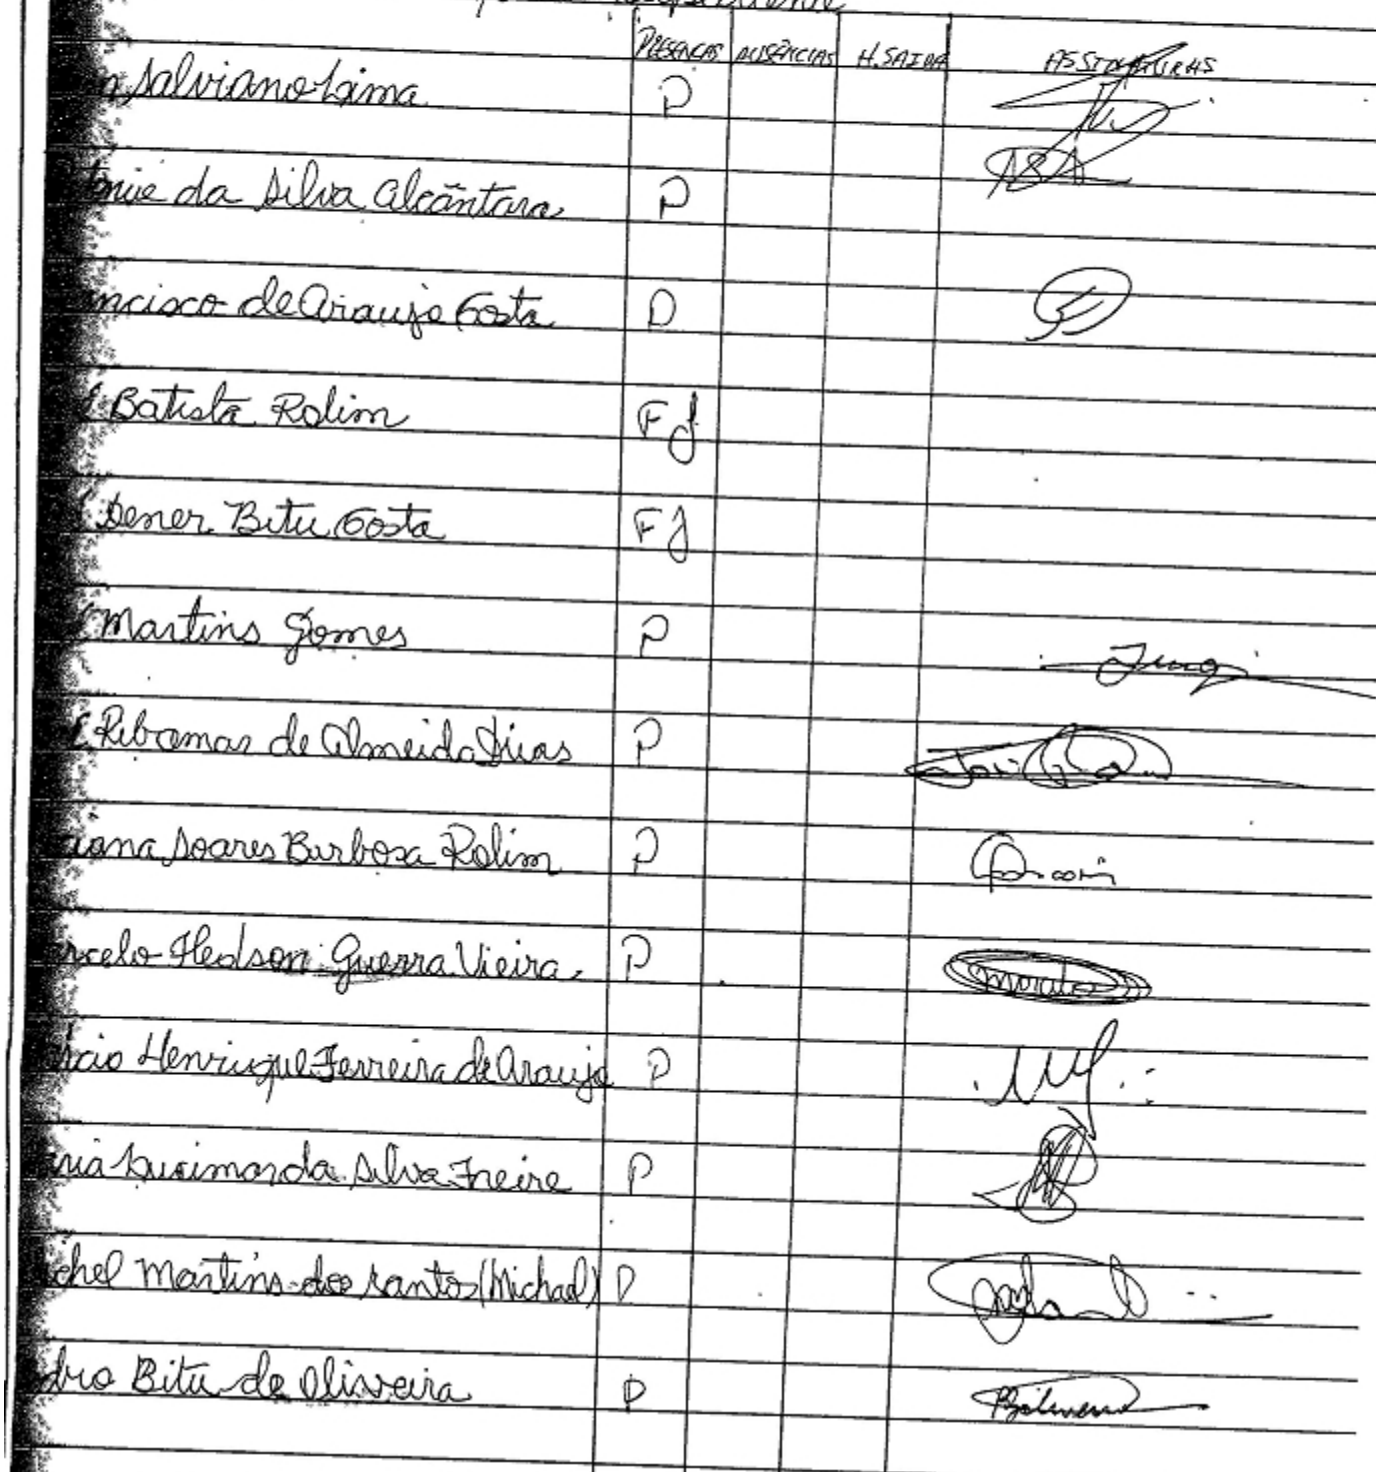 PRESENÇAS AUSÊNCIAS H. SAIDA ASSINATURAS
Salviano Lima P
da Silva Alcântara P
ncisco de Araujo Costa P
Batista Rolim FJ
Dener Bitu Costa FJ
Martins Gomes P
Ribamar de Almeida Dias P
iana Soares Barbosa Rolim P
rcelo Hedson Guerra Vieira P
rcio Henrique Ferreira de Araujo P
ria Lucimar da Silva Freire P
chel Martins dos Santos (Michael) P
dro Bitu de Oliveira P